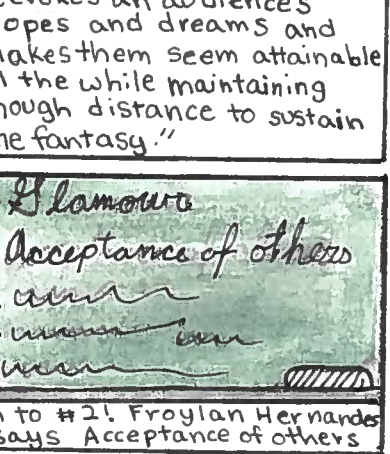 evokes an audiences
opes and dreams and
akes them seem attainable
l the while maintaining
nough distance to sustain
he fantasy."
Glamour
Acceptance of others
n to #2! Froylan Hernandes
says Acceptance of others